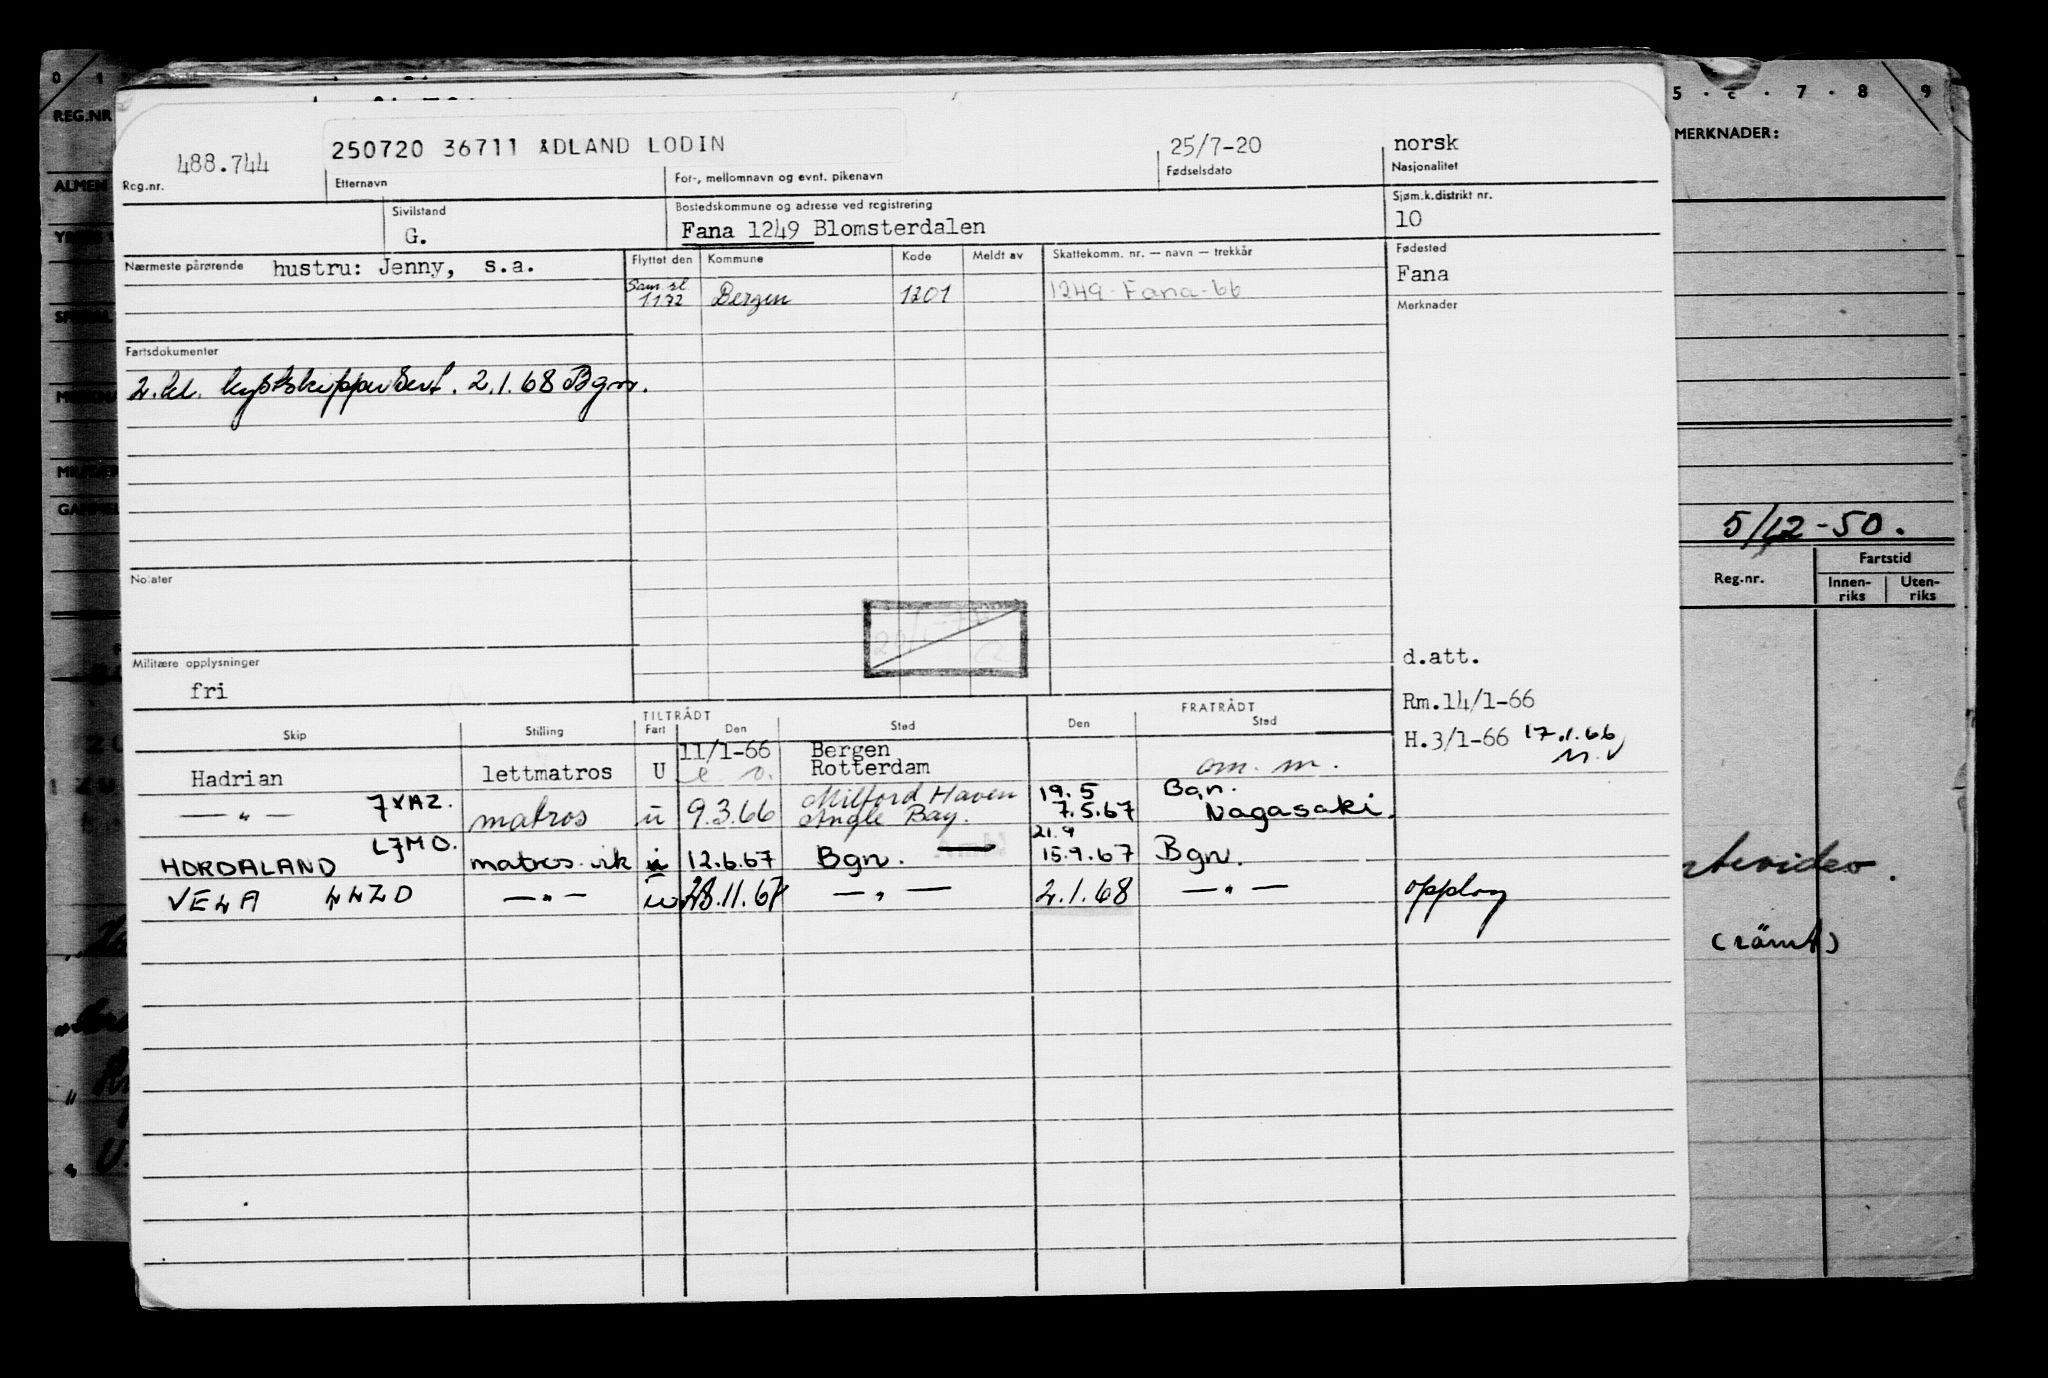 0 1
REG.NR
5 · 6 · 7 · 8 9
MERKNADER:
488.744
Reg.nr.
250720 36711 ÅDLAND LODIN
Etternavn
For-, mellomnavn og evnt. pikenavn
25/7-20
Fødselsdato
norsk
Nasjonalitet
Sivilstand
G.
Bostedskommune og adresse ved registrering
Fana 1249 Blomsterdalen
Sjøm.k.distrikt nr.
10
Nærmeste pårørende hustru: Jenny, s.a.
Flyttet den Kommune Kode Meldt av Skattekomm. nr. — navn — trekkår
Fødested
Fana
Sam.sl.
1172 Bergen 1201 1249-Fana-66
Merknader
Fartsdokumenter
2. kl. kystskippersert. 2.1.68 Bgn.
5/12-50.
Fartstid
Reg.nr. Innen-riks Uten-riks
Notater
Militære opplysninger
fri
d.att.
Rm.14/1-66
H.3/1-66 17.1.66
TILTRÅDT FRATRÅDT
Skip Stilling Fart Den Sted Den Sted
11/1-66 Bergen
Hadrian lettmatros U Rotterdam om. m.
Milford Haven 19.5 Bgn.
— " — 7XAZ. matros u 9.3.66 Angle Bay. 7.5.67 Nagasaki.
LJMO. 21.9
HORDALAND matros vik 12.6.67 Bgn. — 15.9.67 Bgn.
VELA LLZD — " — 28.11.67 — " — 2.1.68 — " — opplag
(römt)